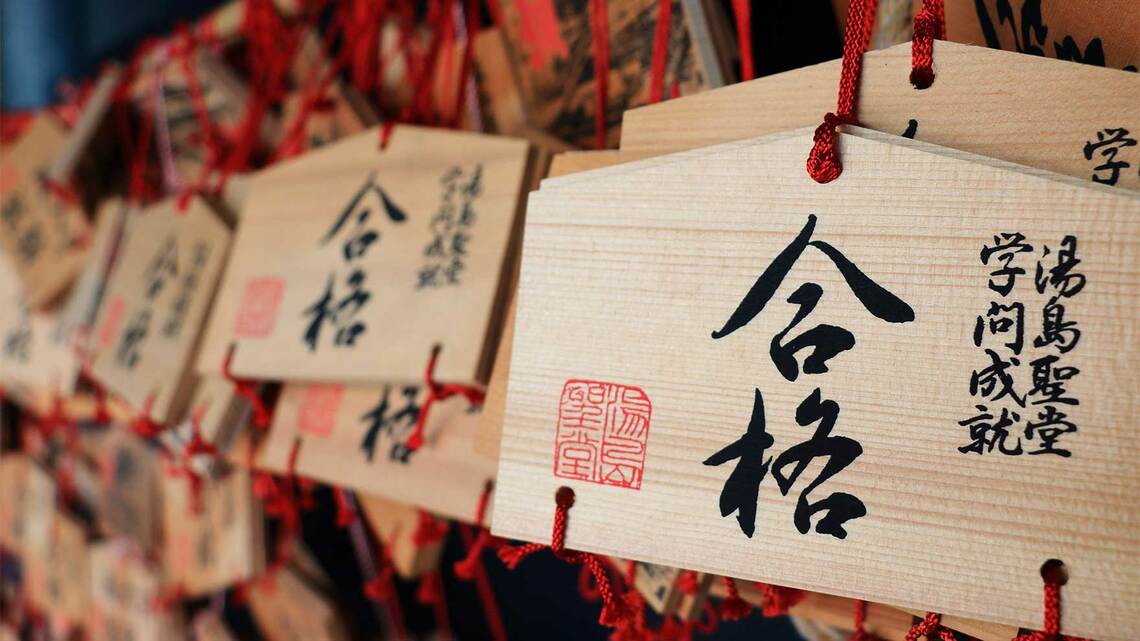 湯島聖堂
学問成就
合格
湯島聖堂
湯島聖堂
学問成就
合格
合格
格
学